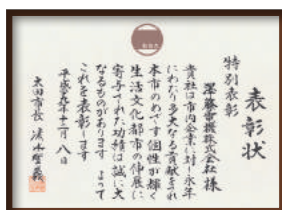 表彰状
特別表彰
澤藤電機株式会社様
貴社は市内企業に対し永年
にわたり多大なる貢献をされ
本市のめざす個性が輝く
生活文化都市の伸展に
寄与された功績は誠に大
なるものがあります よって
これを表彰します
平成十九年十二月八日
太田市長 清水聖義